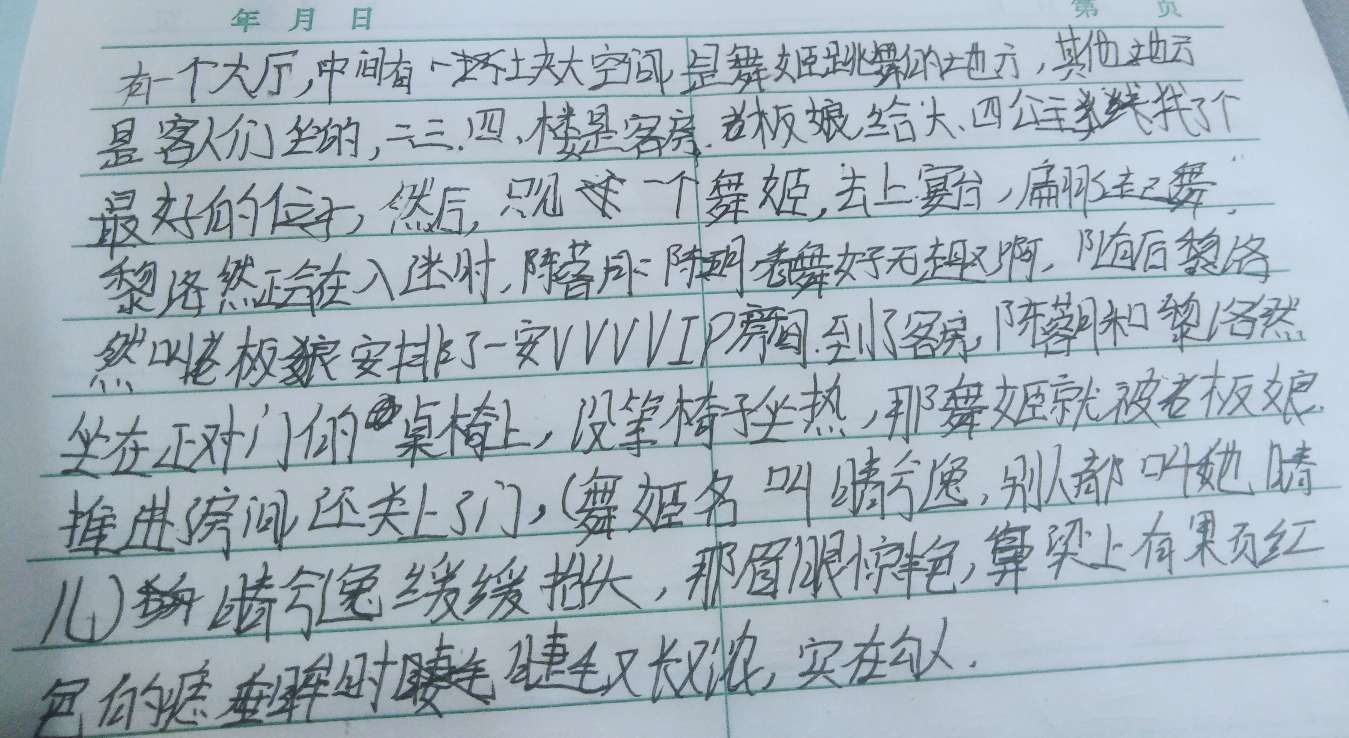 年 月 日 第 页
有一个大厅,中间有一块大空间,是舞姬跳舞的地方,其他地方
是客人们坐的,二.三.四、楼是客房.老板娘给大、四公主找了个
最好的位子,然后,只见一个舞姬,去上宴台,扁羽起舞,
黎洛然正会在入迷时,陈蓉月:陈玥看舞好无趣啊,随后黎洛
然叫老板娘安排了一安VVVVIP房间.到了客房,陈蓉月和黎洛然
坐在正对门的桌椅上,没等椅子坐热,那舞姬就被老板娘
推进房间还关上了门,(舞姬名叫晴兮兔,别人都叫她晴
儿)晴兮兔缓缓抬头,那眉眼惊艳,鼻梁上有果页红
色的痣垂眸时睫毛又长又浓,实在勾人.